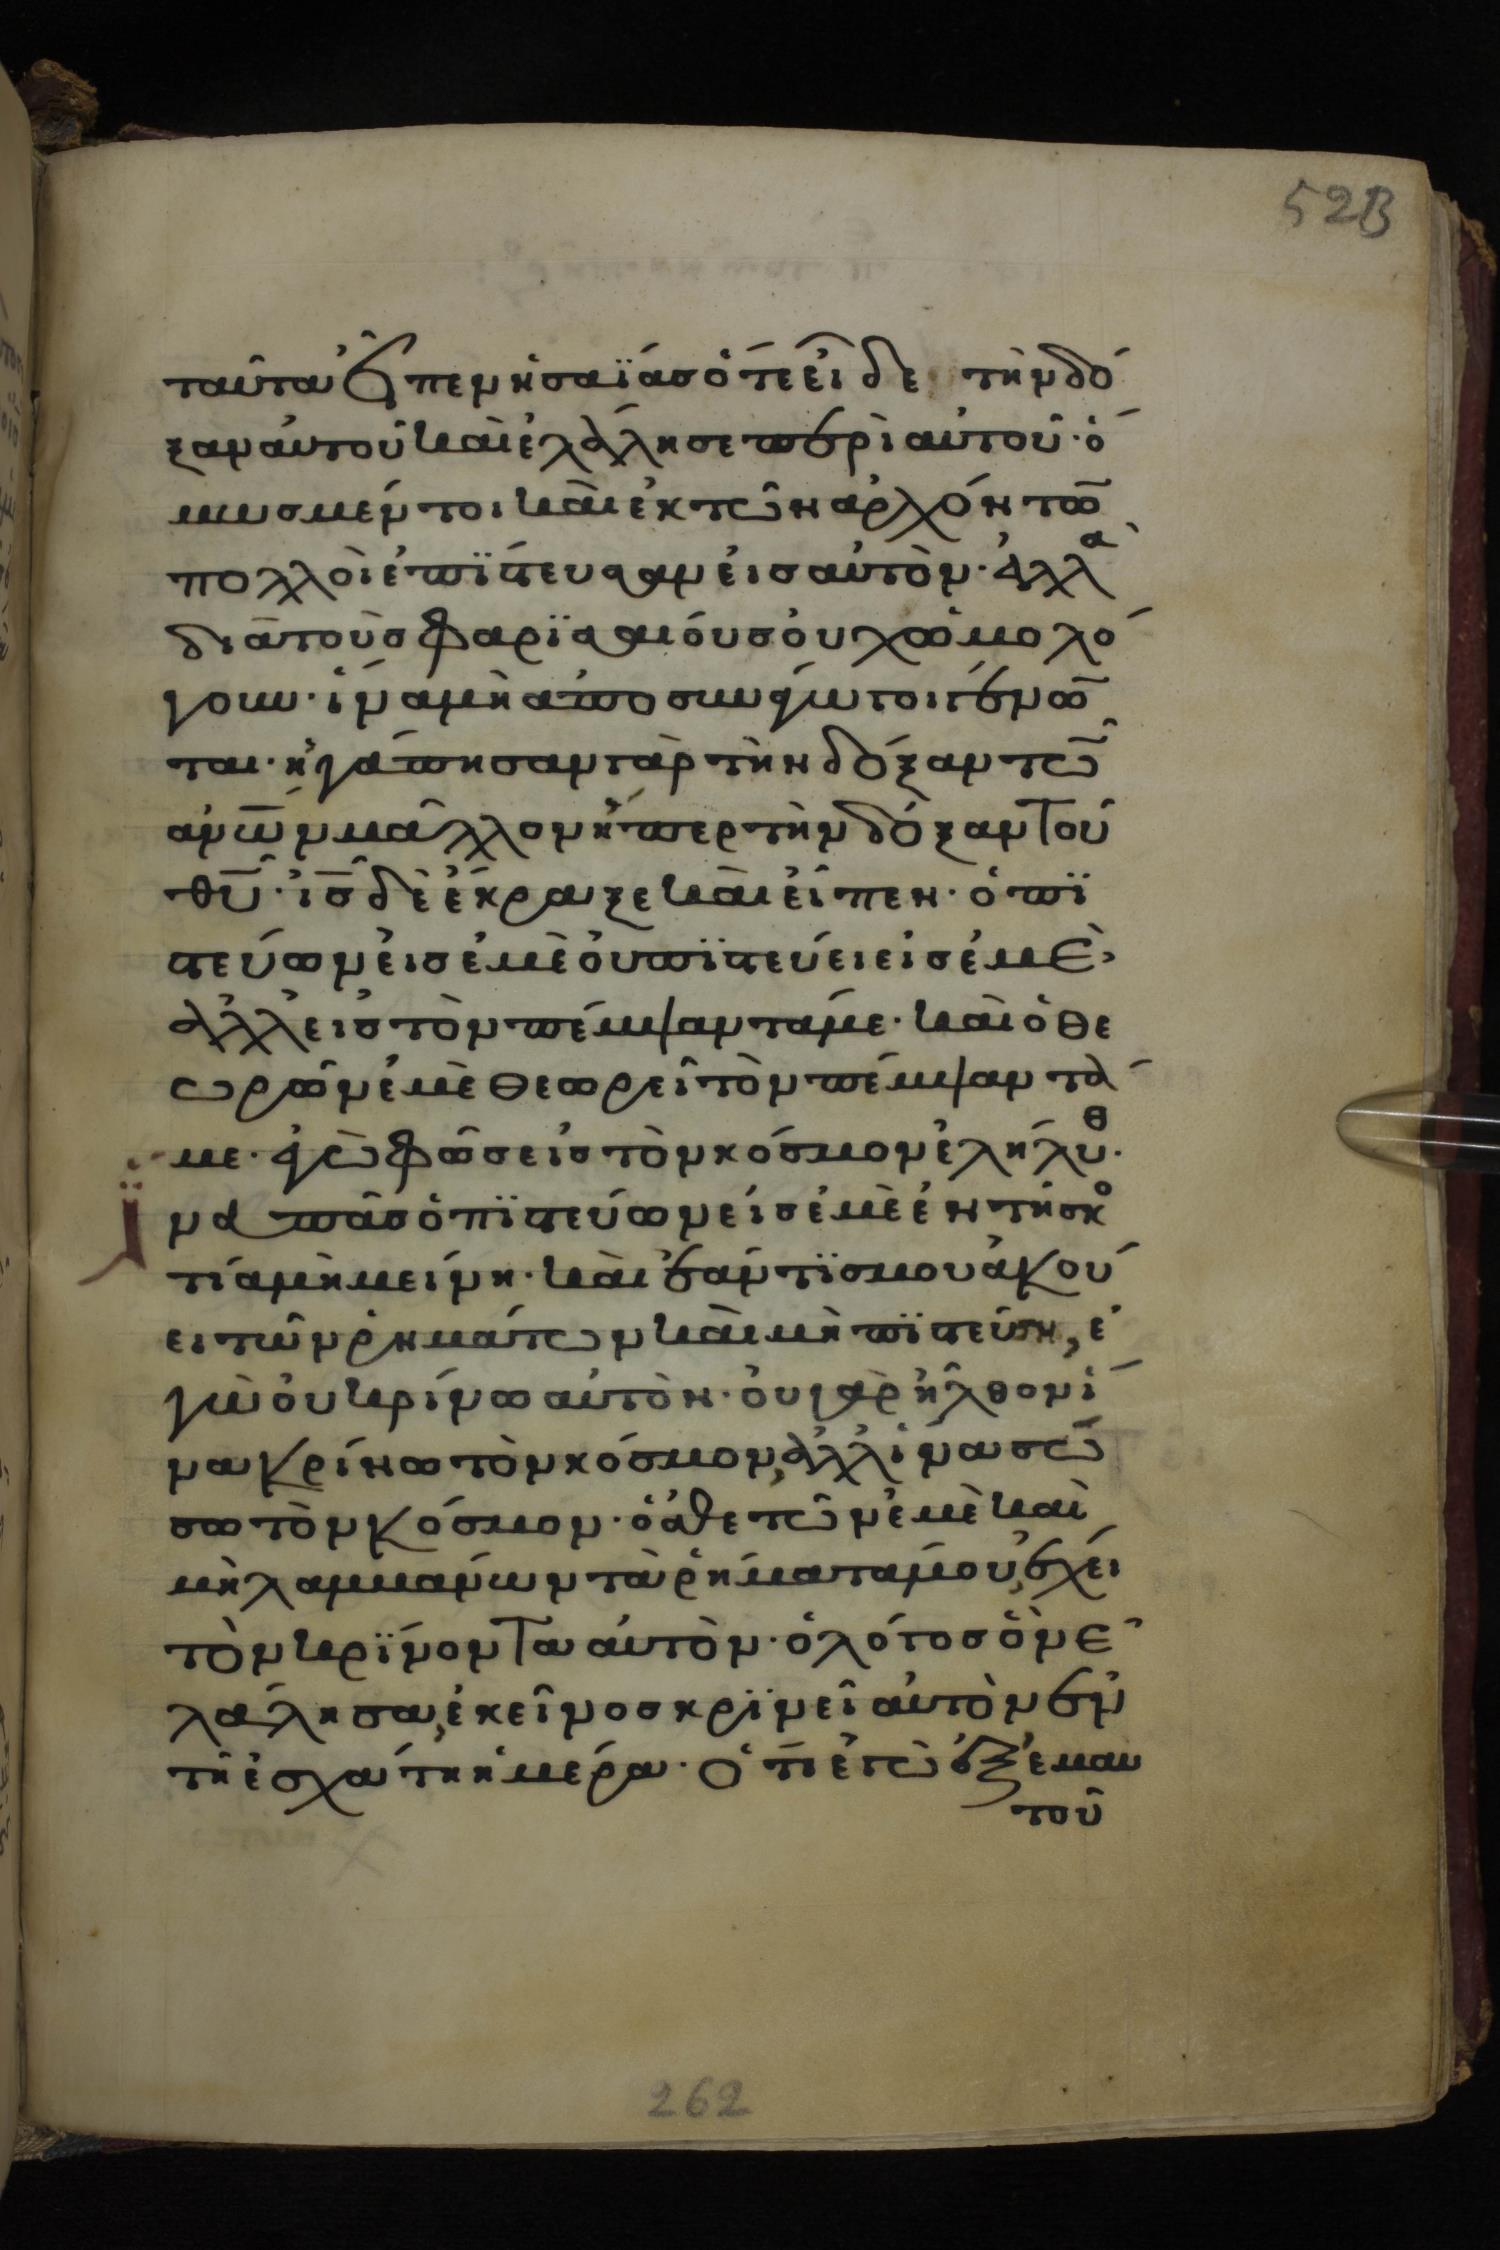 52B
ταῦτα εἶπεν ἡσαΐας ὅτε εἶδε τὴν δό
ξαν αὐτοῦ καὶ ἐλάλησε περὶ αὐτοῦ· ὅ
μως μέντοι καὶ ἐκ τῶν ἀρχόντω̅
πολλοὶ ἐπίστευσαν εἰς αὐτὸν· ἀλλὰ
διὰ τοὺς φαρισαίους οὐχ ὡμολό
γουν· ἵνα μὴ ἀποσυνάγωγοι γένω̅
ται· ἠγάπησαν γὰρ τὴν δόξαν τῶ̅
ἀν̅ω̅ν μᾶλλον ἤπερ τὴν δόξαν τοῦ
θ̅υ̅· ἰ̅ς̅ δὲ ἔκραξε καὶ εἶπεν· ὁ πι
στεύων εἰς ἐμὲ οὐ πιστεύει εἰς ἐμὲ,
ἀλλ' εἰς τὸν πέμψαντά με· καὶ ὁ θε
ωρῶν ἐμὲ θεωρεῖ τὸν πέμψαντά
με· ἐγὼ φῶς εἰς τὸν κόσμον ἐλήλυθ·
ἵνα πᾶς ὁ πιστεύων εἰς ἐμὲ ἐν τῇ σκο
τίᾳ μὴ μείνῃ· καὶ ἐάν τίς μου ἀκού
ει τῶν ῥημάτων καὶ μὴ πιστεύσῃ, ἐ
γὼ οὐ κρίνω αὐτὸν· οὐ γὰρ ἦλθον ἵ
να κρίνω τὸν κόσμον, ἀλλ' ἵνα σώ
σω τὸν κόσμον· ὁ ἀθετῶν ἐμὲ καὶ
μὴ λαμμάνων τὰ ῥήματά μου, ἔχει
τὸν κρίνοντα αὐτὸν· ὁ λόγος ὃν ἐ
λάλησα, ἐκεῖνος κρινεῖ αὐτὸν ἐν
τῇ ἐσχάτῃ ἡμέρᾳ· ὅτι ἐγὼ ἐξ ἐμαυ
τοῦ
262